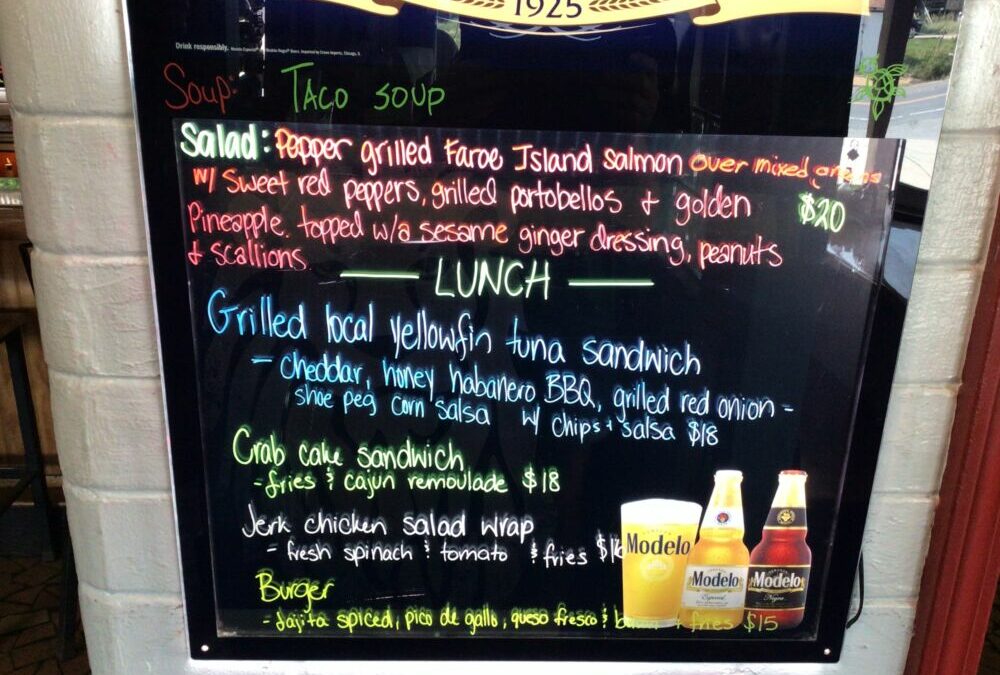 1925
Drink responsibly.
Soup: Taco soup
Salad: Pepper grilled Faroe Island salmon over mixed greens
w/ sweet red peppers, grilled portobellos + golden $20
Pineapple. topped w/a sesame ginger dressing, peanuts
+ scallions.
LUNCH
Grilled local yellowfin tuna sandwich
- cheddar, honey habanero BBQ, grilled red onion -
shoe peg corn salsa w/ chips + salsa $18
Crab cake sandwich
- fries & cajun remoulade $18
Jerk chicken salad wrap
- fresh spinach & tomato & fries $16
Burger
- fajita spiced, pico de gallo, queso fresco & + fries $15
Modelo
Modelo
Especial
Modelo
Negra